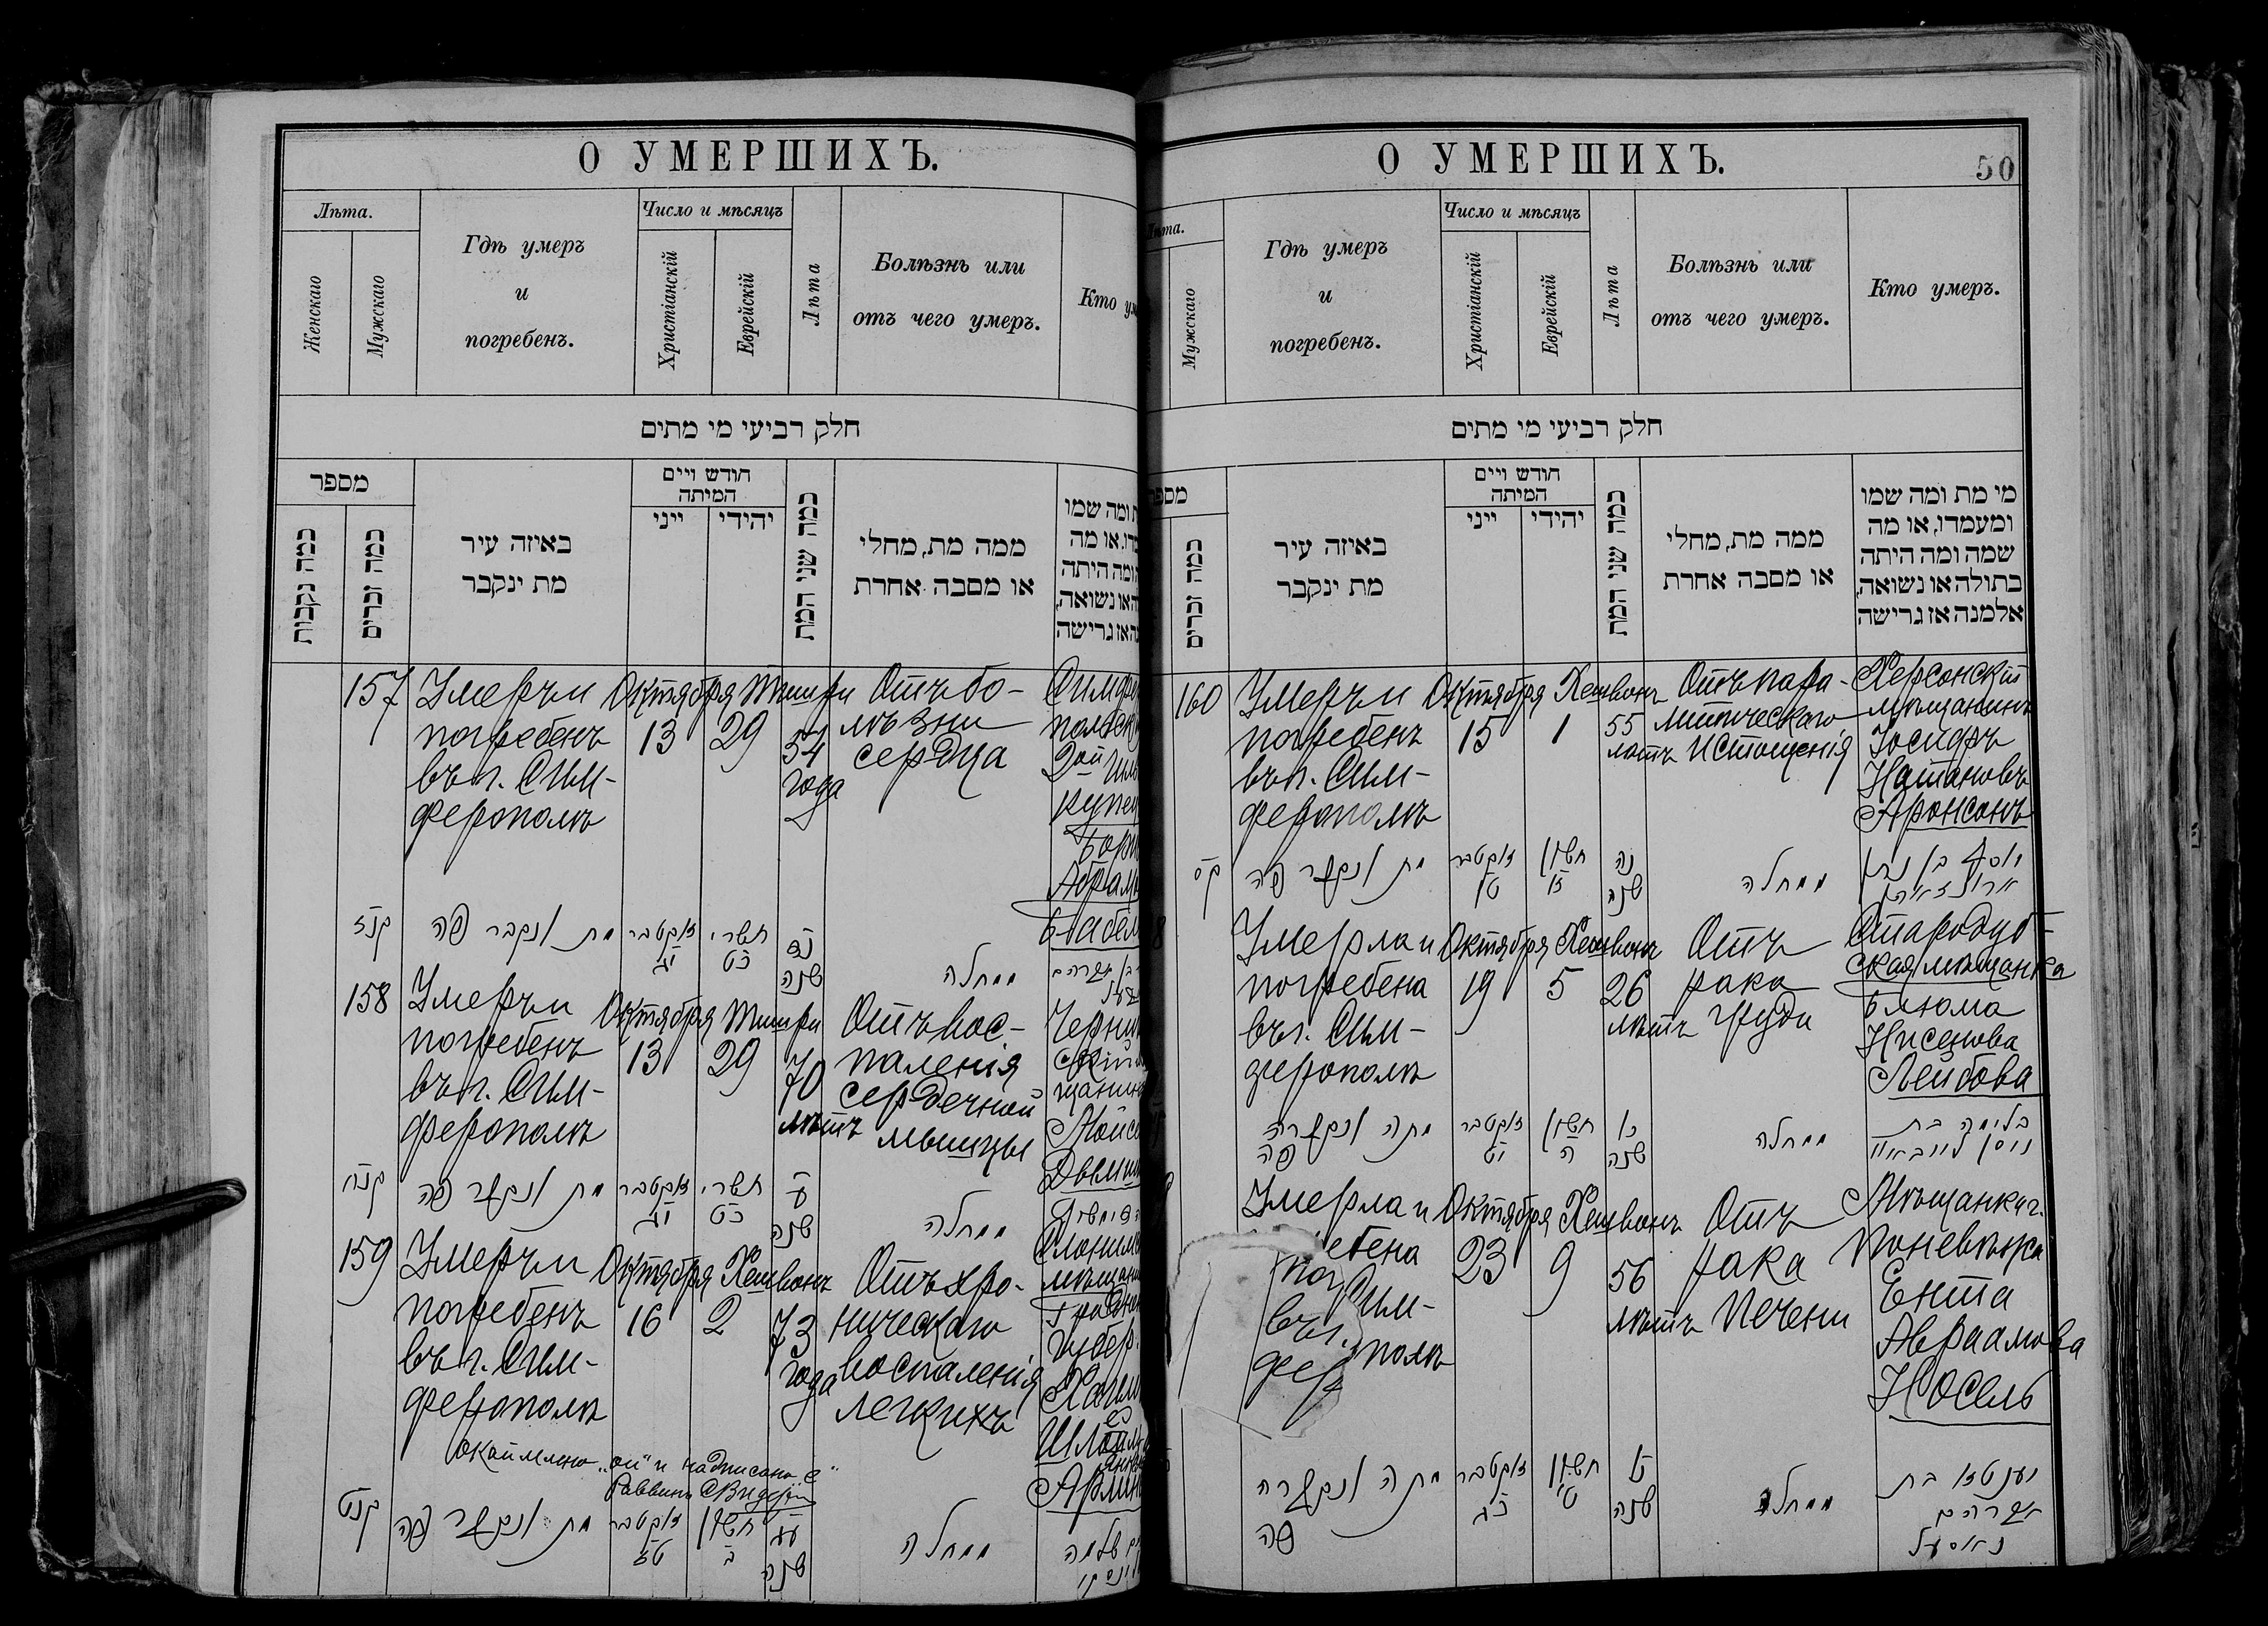 О УМЕРШИХЪ.
Лѣта.
Женскаго
Мужскаго
Гдѣ умеръ
и
погребенъ.
Число и мѣсяцъ
Христіанскій
Еврейскій
Лѣта
Болѣзнь или
отъ чего умеръ.
Кто
חלק רביעי מי מתים
מספר
כמה נקבות
כמה זכרים
באיזה עיר
מת ינקבר
חודש ויים
המיתה
ייני
יהידי
כמה שני המת
ממה מת, מחלי
או מסבה אחרת
ומה שמו
או מה
ומה היתה
או נשואה,
או גרישה
157
Умеръ и
погребенъ
въ г. Сим-
ферополѣ
Октября
13
Тишри
29
54
года
Отъ бо-
лѣзни
сердца
2ой
קנז
מת ונקבר פה
אקטבר
יג
תשרי
כט
נד
שנה
ממחלה
158
Умеръ и
погребенъ
въ г. Сим-
ферополѣ
Октября
13
Тишри
29
70
лѣтъ
Отъ вос-
паленія
сердечной
мышцы
קנח
מת ונקבר פה
אקטבר
יג
תשרי
כט
ע
שנה
ממחלה
159
Умеръ и
погребенъ
въ г. Сим-
ферополѣ
Октября
16
Хешвонъ
2
73
года
Отъ хро-
ническаго
воспаленія
легкихъ
окаймлено „ои“ и надписано „е“
Раввинъ
קנט
מת ונקבר פה
אקטבר
טז
חשון
ב
עג
שנה
ממחלה
שלמה
О УМЕРШИХЪ.
50
Мужскаго
Гдѣ умеръ
и
погребенъ.
Число и мѣсяцъ
Христіанскій
Еврейскій
Лѣта
Болѣзнь или
отъ чего умеръ.
Кто умеръ.
חלק רביעי מי מתים
כמה זכרים
באיזה עיר
מת ינקבר
חודש ויים
המיתה
ייני
יהידי
כמה שני המת
ממה מת, מחלי
או מסבה אחרת
מי מת ומה שמו
ומעמדו, או מה
שמה ומה היתה
בתולה או נשואה,
אלמנה אז גרישה
160
Умеръ и
погребенъ
въ г. Сим-
ферополѣ
Октября
15
Хешвонъ
1
55
лѣтъ
Отъ пара-
литическаго
истощенія
Херсонскій
мѣщанинъ
Іосифъ
Натановъ
Аронсонъ
קס
מת ונקבר פה
אקטבר
טו
חשון
נה
שנה
ממחלה
יוסף בן נתן
Умерла и
погребена
въ г. Сим-
ферополѣ
Октября
19
Хешвонъ
5
26
лѣтъ
Отъ
рака
груди
Стародуб-
ская мѣщанка
Блюма
Нисенова
Лейбова
מתה ונקברה
פה
אקטבר
יט
חשון
ה
כו
שנה
ממחלה
בלימה בת
ניסן
Умерла и
Октября
23
Хешвонъ
9
56
лѣтъ
Отъ
рака
печени
Мѣщанка г.
Поневѣжа
Ента
Авраамова
Носель
מתה ונקברה
פה
אקטבר
כג
חשון
ט
שנה
ממחלה
יענטא בת
אברהם
נאסעל